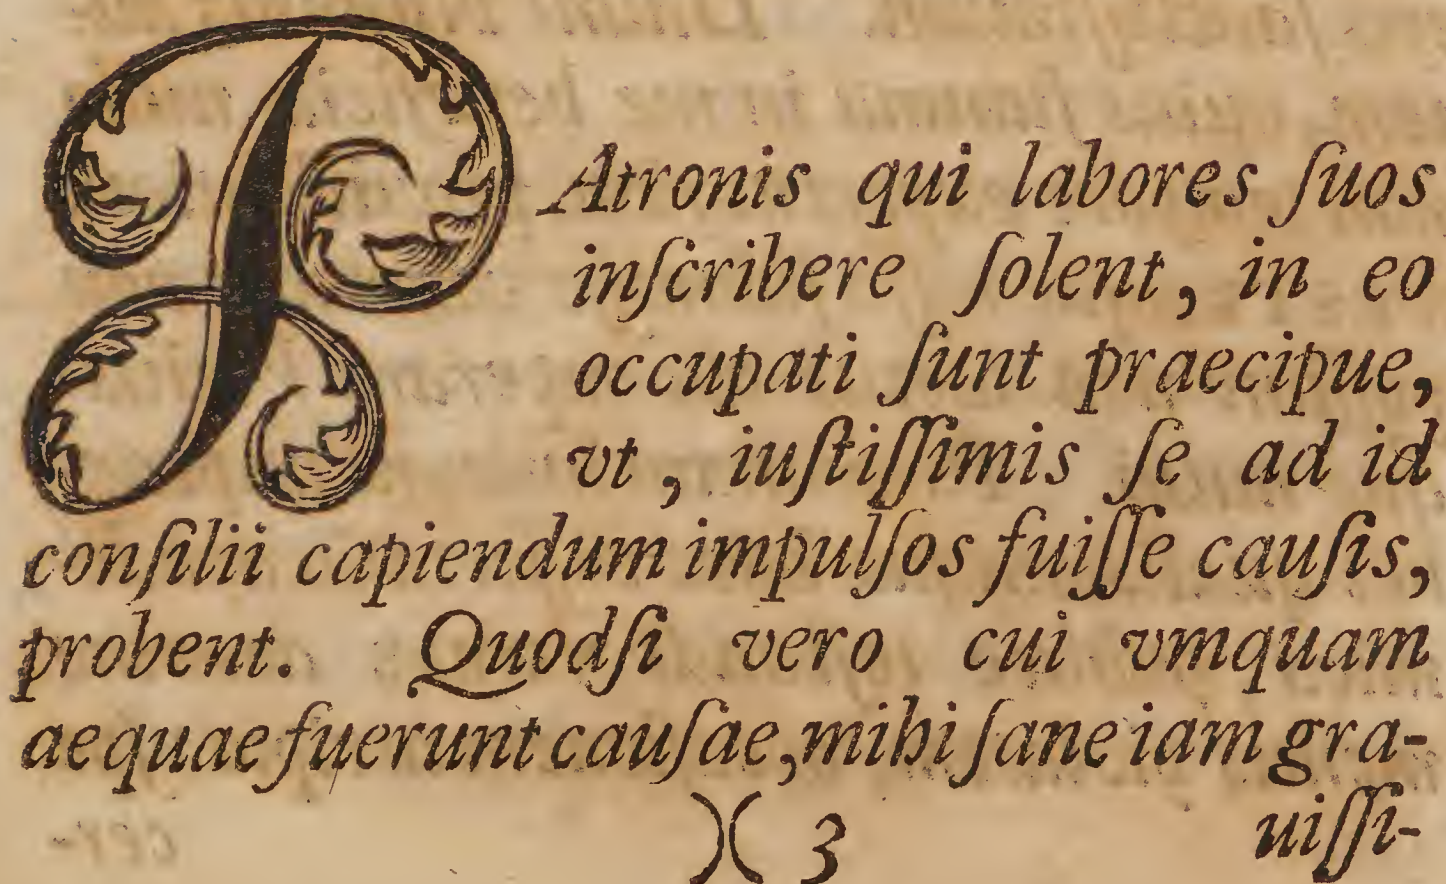 PAtronis qui labores ſuos
inſcribere ſolent, in eo
occupati ſunt praecipue,
vt, iuſtiſſimis ſe ad id
conſilii capiendum impulſos fuiſſe cauſis,
probent. Quodſi vero cui vmquam
aequae fuerunt cauſae, mihi ſane iam gra-
)( 3 uiſſi-